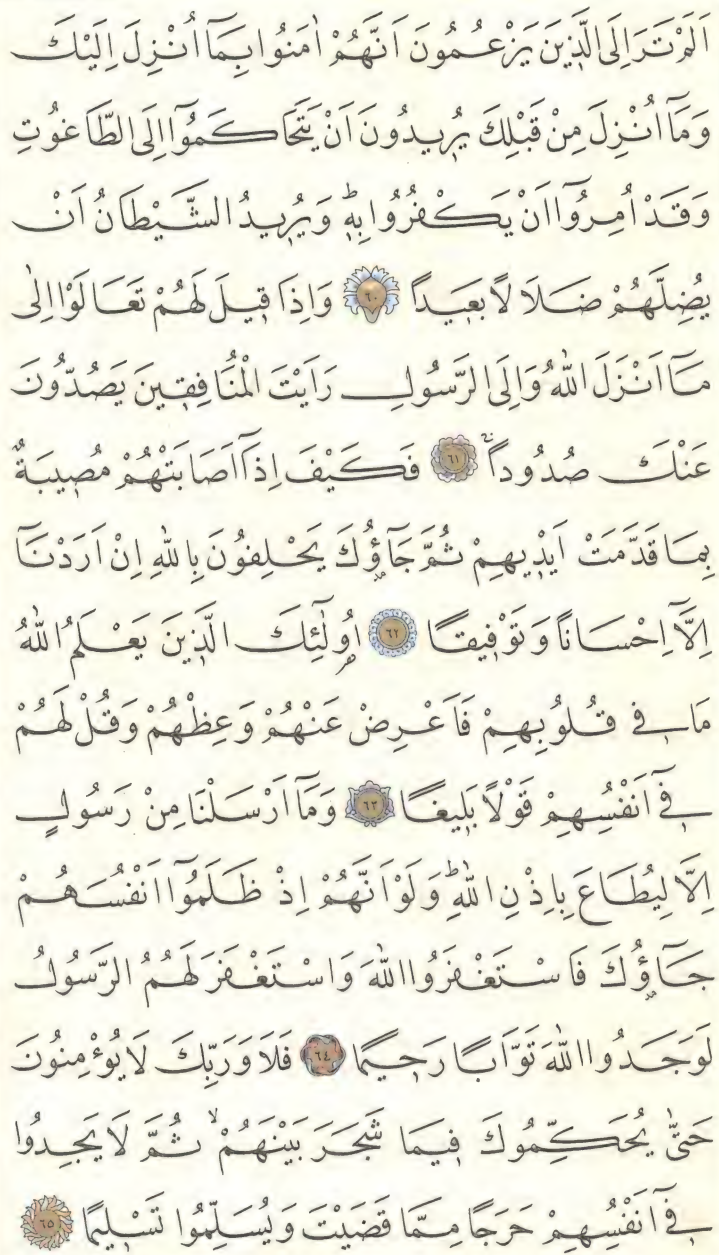 اَلَمْ تَرَ اِلَى الَّذٖينَ يَزْعُمُونَ اَنَّهُمْ اٰمَنُوا بِمَٓا اُنْزِلَ اِلَيْكَ
وَمَٓا اُنْزِلَ مِنْ قَبْلِكَ يُرٖيدُونَ اَنْ يَتَحَاكَمُٓوا اِلَى الطَّاغُوتِ
وَقَدْ اُمِرُٓوا اَنْ يَكْفُرُوا بِهٖؕ وَيُرٖيدُ الشَّيْطَانُ اَنْ
يُضِلَّهُمْ ضَلَالًا بَعٖيدًا ٦٠ وَاِذَا قٖيلَ لَهُمْ تَعَالَوْا اِلٰى
مَٓا اَنْزَلَ اللّٰهُ وَاِلَى الرَّسُولِ رَاَيْتَ الْمُنَافِقٖينَ يَصُدُّونَ
عَنْكَ صُدُودًاۚ ٦١ فَكَيْفَ اِذَٓا اَصَابَتْهُمْ مُصٖيبَةٌ
بِمَا قَدَّمَتْ اَيْدٖيهِمْ ثُمَّ جَٓاؤُ۫كَ يَحْلِفُونَ بِاللّٰهِ اِنْ اَرَدْنَٓا
اِلَّٓا اِحْسَانًا وَتَوْفٖيقًا ٦٢ اُو۬لٰٓئِكَ الَّذٖينَ يَعْلَمُ اللّٰهُ
مَا فٖي قُلُوبِهِمْ فَاَعْرِضْ عَنْهُمْ وَعِظْهُمْ وَقُلْ لَهُمْ
فٖٓي اَنْفُسِهِمْ قَوْلًا بَلٖيغًا ٦٣ وَمَٓا اَرْسَلْنَا مِنْ رَسُولٍ
اِلَّا لِيُطَاعَ بِاِذْنِ اللّٰهِؕ وَلَوْ اَنَّهُمْ اِذْ ظَلَمُٓوا اَنْفُسَهُمْ
جَٓاؤُ۫كَ فَاسْتَغْفَرُوا اللّٰهَ وَاسْتَغْفَرَ لَهُمُ الرَّسُولُ
لَوَجَدُوا اللّٰهَ تَوَّابًا رَحٖيمًا ٦٤ فَلَا وَرَبِّكَ لَا يُؤْمِنُونَ
حَتّٰى يُحَكِّمُوكَ فٖيمَا شَجَرَ بَيْنَهُمْۙ ثُمَّ لَا يَجِدُوا
فٖٓي اَنْفُسِهِمْ حَرَجًا مِمَّا قَضَيْتَ وَيُسَلِّمُوا تَسْلٖيمًا ٦٥